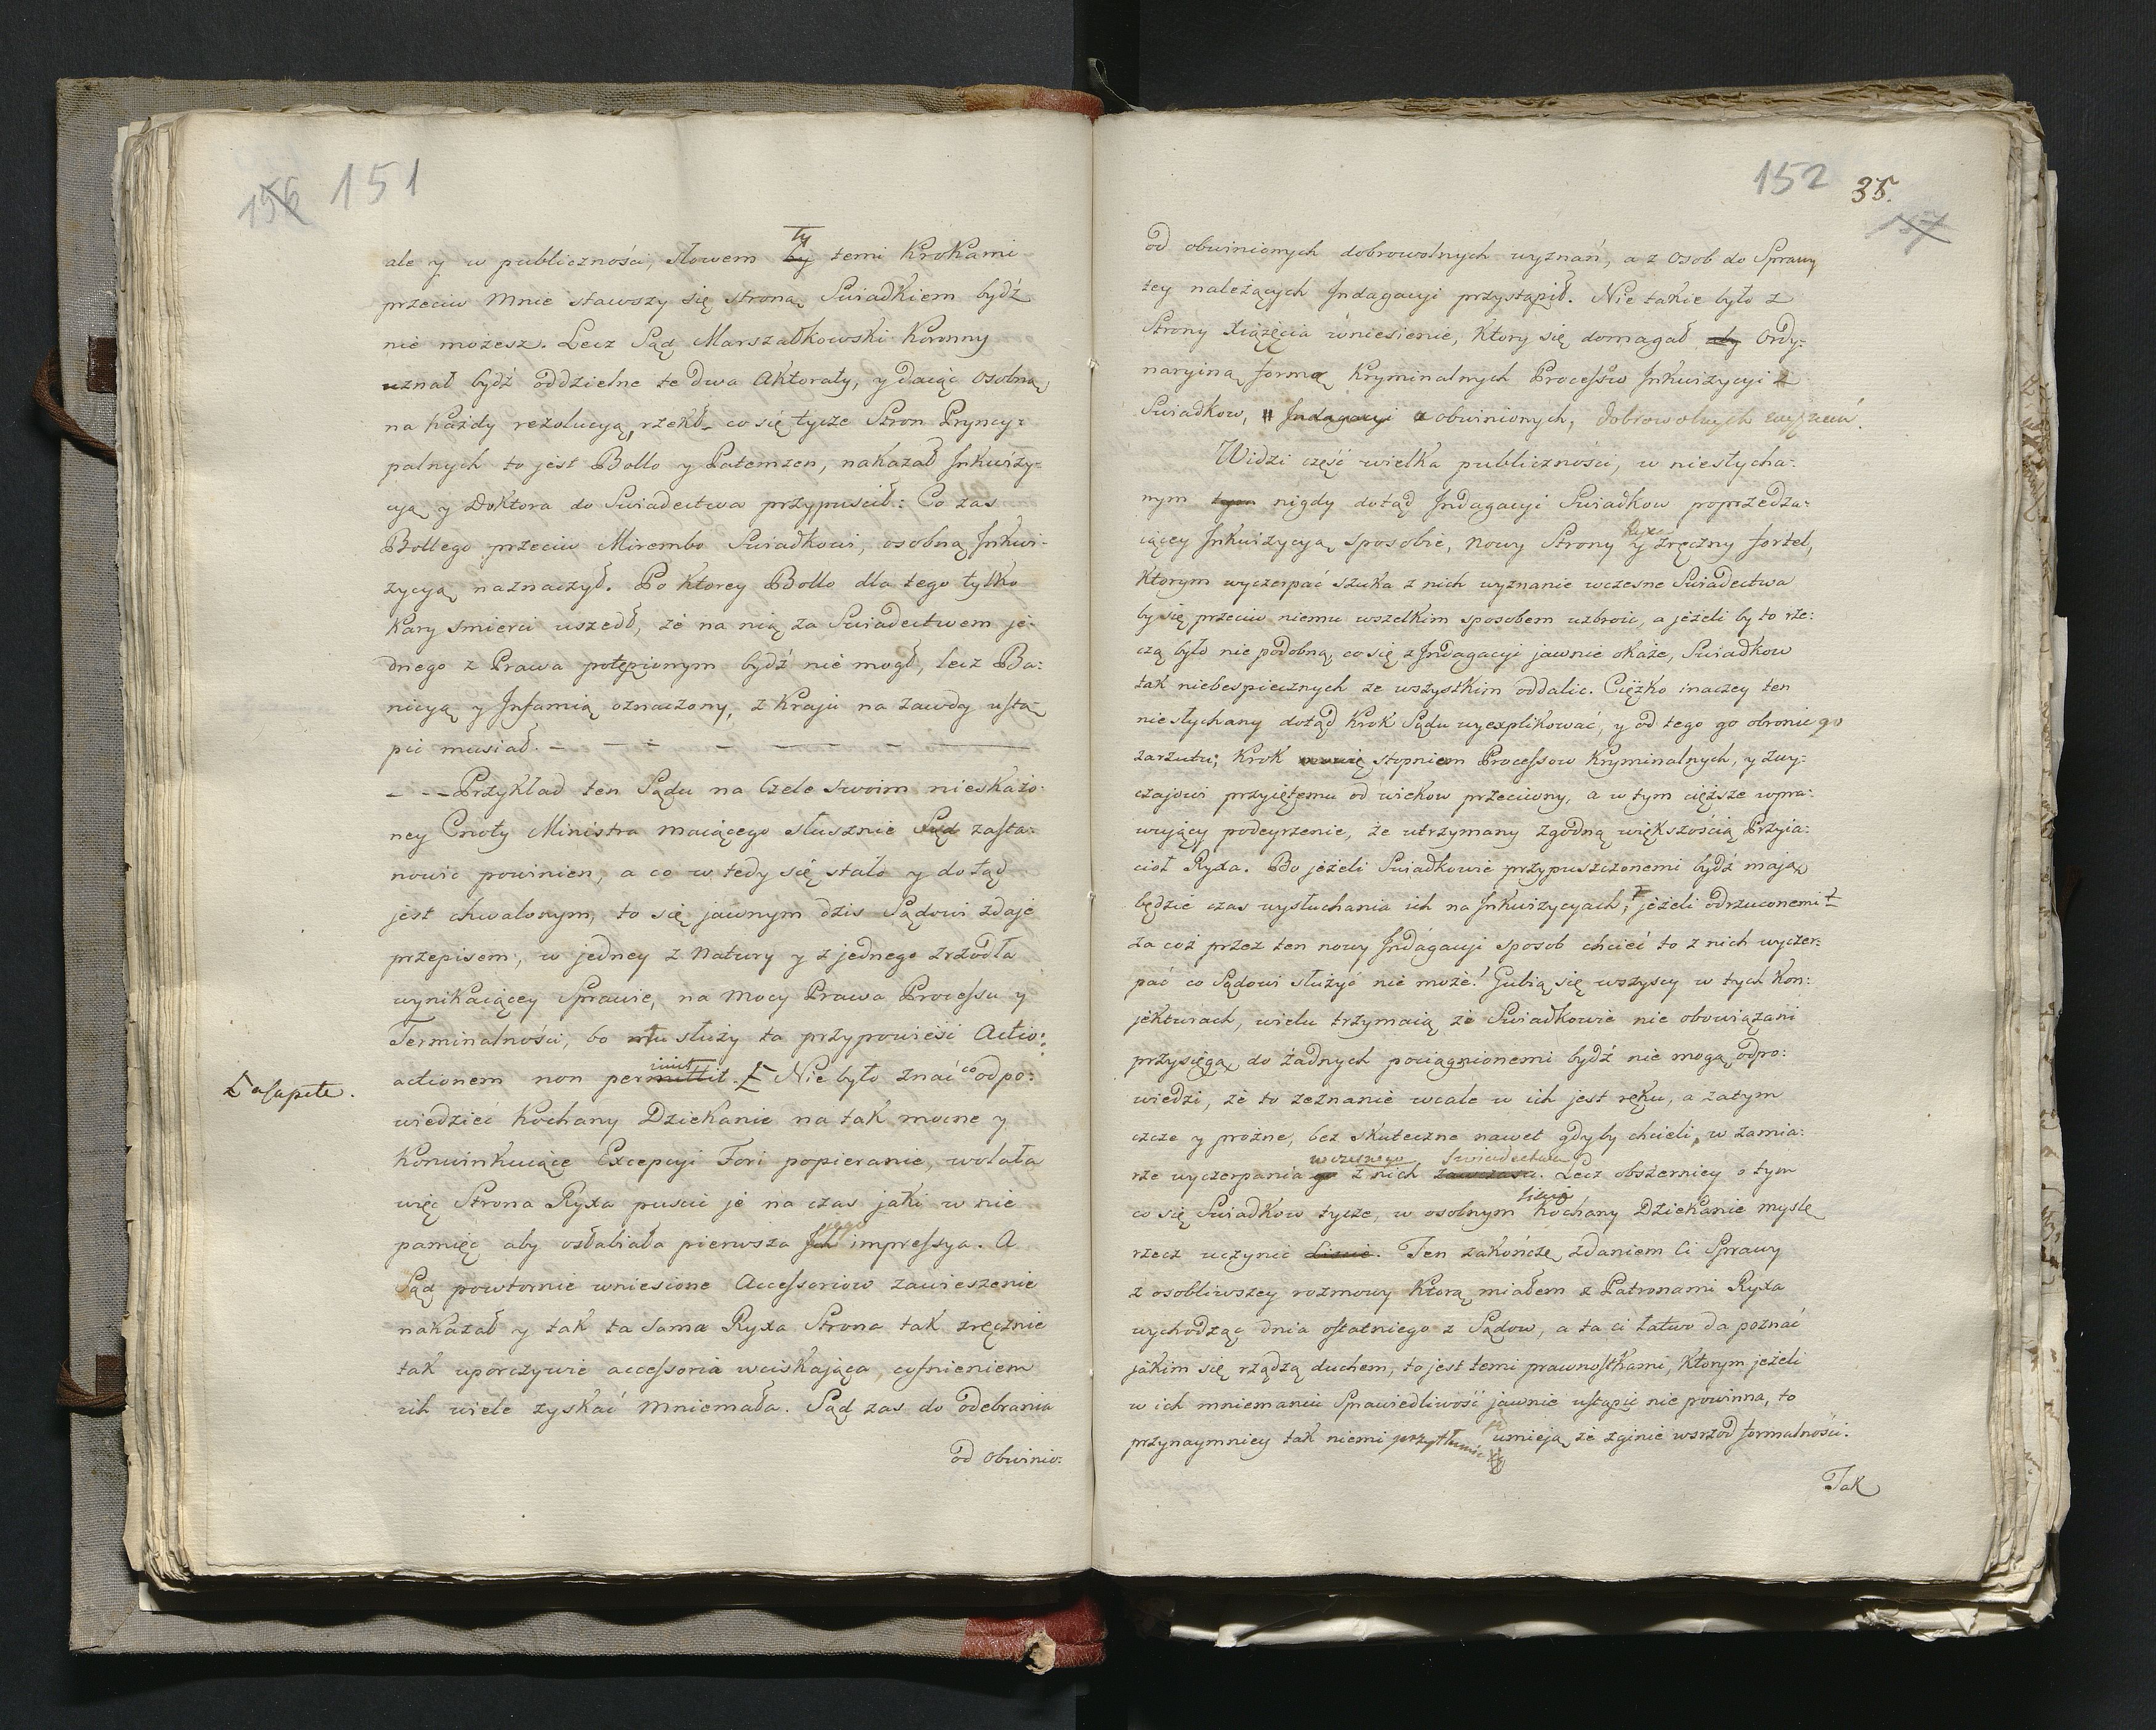 156 151
ale y w publiczności, słowem ty by temi Krokami
przeciw Mnie stawszy się stroną Swiadkiem bydź
nie możesz. Lecz Sąd Marszałkowski Koronny
uznał bydź oddzielne te dwa Aktoraty, y daiąc osobną
na każdy rezolucyą, rzekł co się tycze Stron Pryncy=
palnych to jest Bollo y Patemzen, nakazał Inkwizy=
cyą y Doktora do Swiadectwa przypuscił: Co zas
Bollego przeciw Mirembo Swiadkowi, osobną Inkwi-
zycyą naznaczył. Po ktorey Bollo dla tego tylko
Kary smierci uszedł, że na nią za Swiadectwem je-
dnego z Prawa potępionym bydź nie mogł, lecz Ba=
nicyą y Infamią oznaczony, z Kraju na zawdy ustą
pić musiał. - - - - - - -
- - - Przykład ten Sądu na Czele swoim nieskażo-
ney Cnoty Ministra maiącego słusznie Sąd zasta=
nowic powinien, a co w tedy się stało y dotąd
jest chwalonym, to się jawnym dzis Sądowi zdaje
przepisem, w jedney z Natury y z jednego zrzodła
wynikaiącey Sprawie, na Mocy Prawa Processu y
Terminalności, bo tu służy ta przypowieść Actio:
actionem non permittit. imit Ł Nie było znać co odpo=
Ł asapete.
wiedzieć Kochany Dziekanie na tak mocne y
Konwinkuiące Excepcyi Fori popieranie, wolała
więc Strona Ryxa puscić je na czas jaki w nie
pamięć aby osłabiała pierwsza Ich tego impressya. A
Sąd powtornie wniesione Accessoriow zawieszenie
nakazał y tak ta sama Ryxa Strona tak zręcznie
tak uporczywie accessoria wciskająca, cofnieniem
ich wiele zyskać Mniemała. Sąd zas do odebrania
od obwinio:
152 35.
157
od obwinionych dobrowolnych wyznań, a z osob do Sprawy
tey należących Indagacyi przystąpił. Nie takie było z
Strony Xiążęcia wniesienie, Ktory się domagał aby Ordy=
naryiną formą Kryminalnych Processow Inkwizycyi z
Swiadkow, Indagacyi a obwinionych, dobrowolnych wyznań.
Widzi część wielka publiczności, w niesłycha-
nym tym nigdy dotąd Indagacyi Swiadkow poprzedza-
iącey Inkwizycyą sposobie, nowy Strony Ryxa y zręczny fortel,
Ktorym wyczerpać szuka z nich wyznanie wczesne Swiadectwa
by się przeciw niemu wszelkim sposobem uzbroić, a jeżeli by to rze:
czą było nie podobną, co się z Indagacyi jawnie okaże, Swiadkow
tak niebespiecznych ze wszystkim oddalic. Ciężko inaczey ten
niesłychany dotąd Krok Sądu wyexplikować, y od tego go obronić go
zarzutu; Krok stopniom Processow Kryminalnych, y zwy-
czajowi przyiętemu od wiekow przeciwny, a w tym cięższe wpra:
wujący podeyrzenie, że utrzymany zgodną większością Przyia:
cioł Ryxa. Bo jeżeli Swiadkowie przypuszczonemi bydź mają
będzie czas wysłuchania ich na Inkwizycyach; jeżeli odrzuconemi
za coż przez ten nowy Indagacyi sposob chcieć to z nich wyczer:
pać co Sądowi służyć nie może! Gubią się wszyscy w tych Kon:
jekturach, wielu trzymaią że Swiadkowie nie obowiązani
przysięgą do żadnych pociągnionemi bydź nie mogą odpo:
wiedzi, że to zeznanie wcale w ich jest ręku, a zatym
czcze y prożne, bez skuteczne nawet gdyby chcieli, w zamia:
rze wyczerpania go wczesnego z nich zawczasu Swiadectwa. Lecz obszerniey o tym
co się Swiadkow tycze, w osobnym Liscie Kochany Dziekanie myslę
rzecz uczynić Liscie. Ten zakończę zdaniem Ci Sprawy
z osobliwszey rozmowy Ktorą miałem z Patronami Ryxa
wychodząc dnia ostatniego z Sądow, a ta ci łatwo da poznać
jakim się rządzą duchem, to jest temi prawnostkami, Ktorym jeżeli
w ich mniemaniu Sprawiedliwość jawnie ustąpić nie powinna, to
przynaymniey tak niemi przytłumic ją umieją, że zginie wsrzod formalności.
Tak